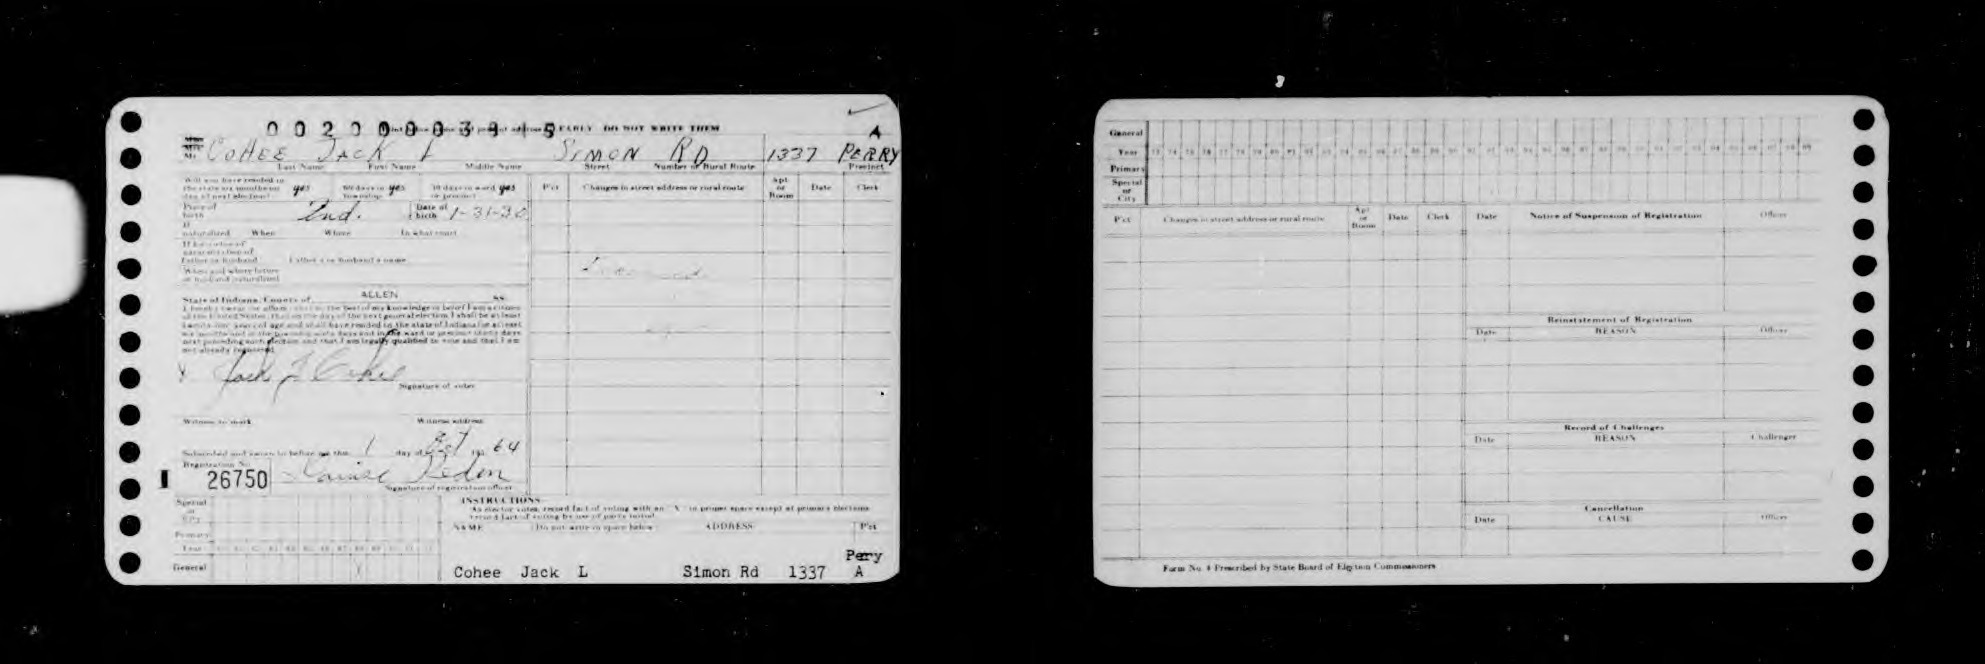 0020000 3915
EARLY DO NOT WRITE THEM
A
Mr COHEE JACK L SIMON RD 1337 PERRY
Last Name First Name Middle Name Street Number or Rural Route Precinct
Will you have resided in
the state six months on yes 60 days in yes 30 days in ward yes
day of next election? township or precinct
Pct Changes in street address or rural route Apt. or Room Date Clerk
Place of birth Ind. Date of birth 1-31-30
If naturalized When Where In what court
If by virtue of
naturalization of
father or husband Father's or husband's name
When and where father
or husband naturalized
State of Indiana, County of ALLEN ss
I hereby swear (or affirm) that to the best of my knowledge or belief I am a citizen
of the United States, that on the day of the next general election I shall be at least
twenty-one years of age and shall have resided in the state of Indiana for at least
six months and in the township sixty days and in the ward or precinct thirty days
next preceding such election and that I am legally qualified to vote and that I am
not already registered
X Jack L Cohee
Signature of voter
Witness to mark Witness address
Subscribed and sworn to before me this 1 day of Oct 19 64
Registration No.
26750 Louise
Signature of registration officer
Special or City
INSTRUCTIONS
As elector votes, record fact of voting with an "X" in proper space except at primary elections
record fact of voting by use of party initial
Primary
NAME Do not write in space below ADDRESS Pct
Year
General X
Perry
Cohee Jack L Simon Rd 1337 A
General
Year 73 74 75 76 77 78 79 80 81 82 83 84 85 86 87 88 89 90 91 92 93 94 95 96 97 98 99 00 01 02 03 04 05 06 07 08 09
Primary
Special or City
Pct Changes in street address or rural route Apt. or Room Date Clerk
Date Notice of Suspension of Registration Officer
Reinstatement of Registration
Date REASON Officer
Record of Challenges
Date REASON Challenger
Cancellation
Date CAUSE Officer
Form No. 4 Prescribed by State Board of Election Commissioners